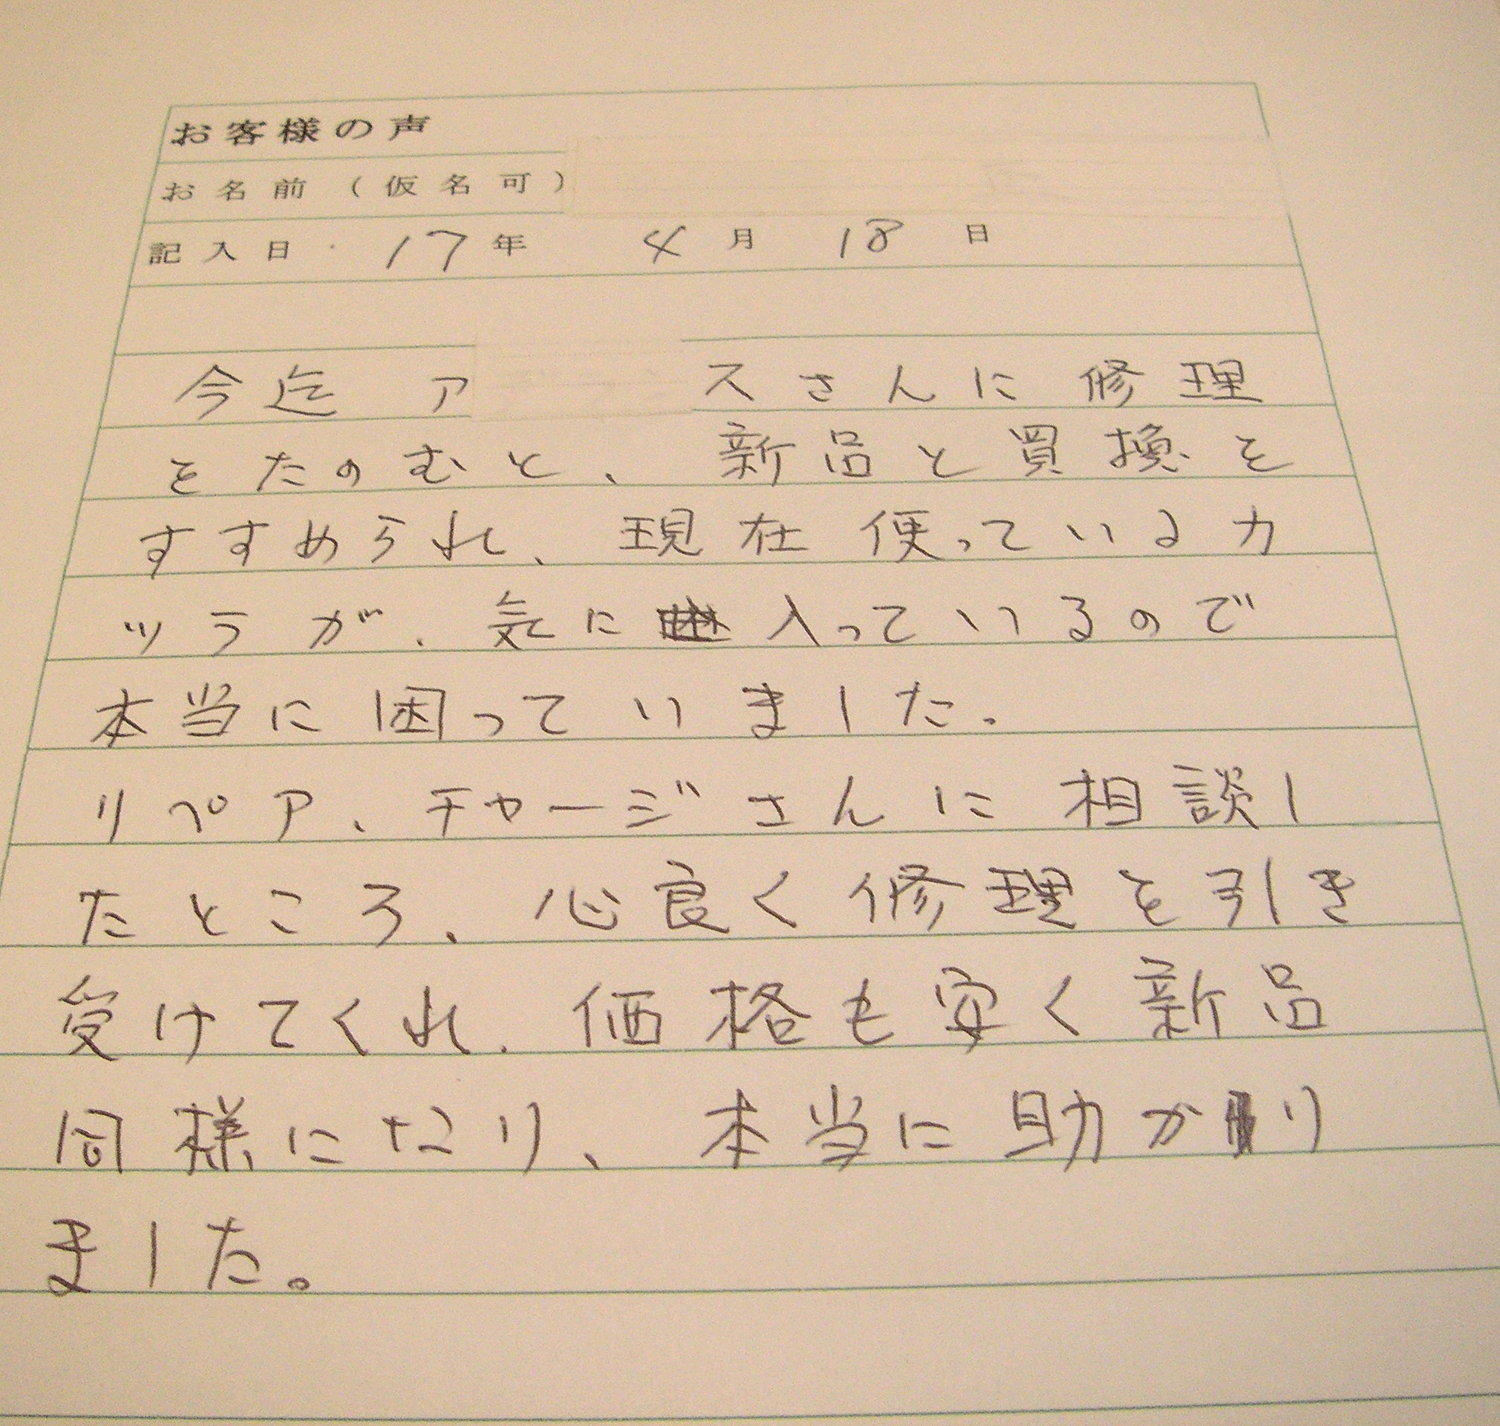 お客様の声
お名前（仮名可）
記入日 17年 4月 18日
今迄 ア スさんに修理
をたのむと、新品と買換を
すすめられ、現在使っているカ
ツラが、気に入っているので
本当に困っていました。
リペア、チャージさんに相談し
たところ、心良く修理を引き
受けてくれ、価格も安く新品
同様になり、本当に助かり
ました。